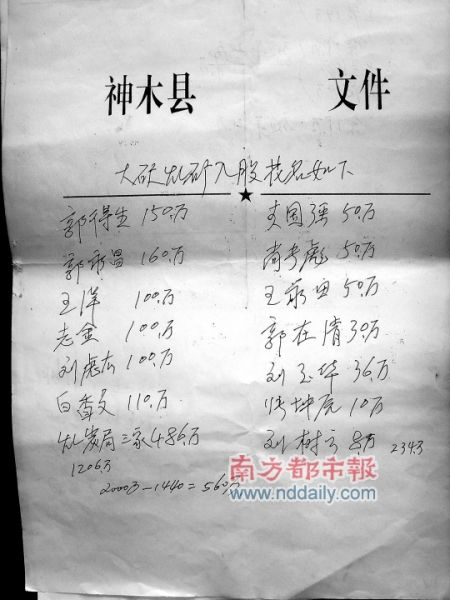 神木县 文件
入股花名如下
150万
郭 昌 160万
王洋 100万
志金 100万
刘虎 100万
白香文 110万
局三家486万
1206万
2000万-1440=560万
国强 50万
尚 彪 50万
王永 50万
郭在清 30万
刘玉华 36万
张坤虎 10万
刘树云 8万
234万
南方都市报
www.nddaily.com